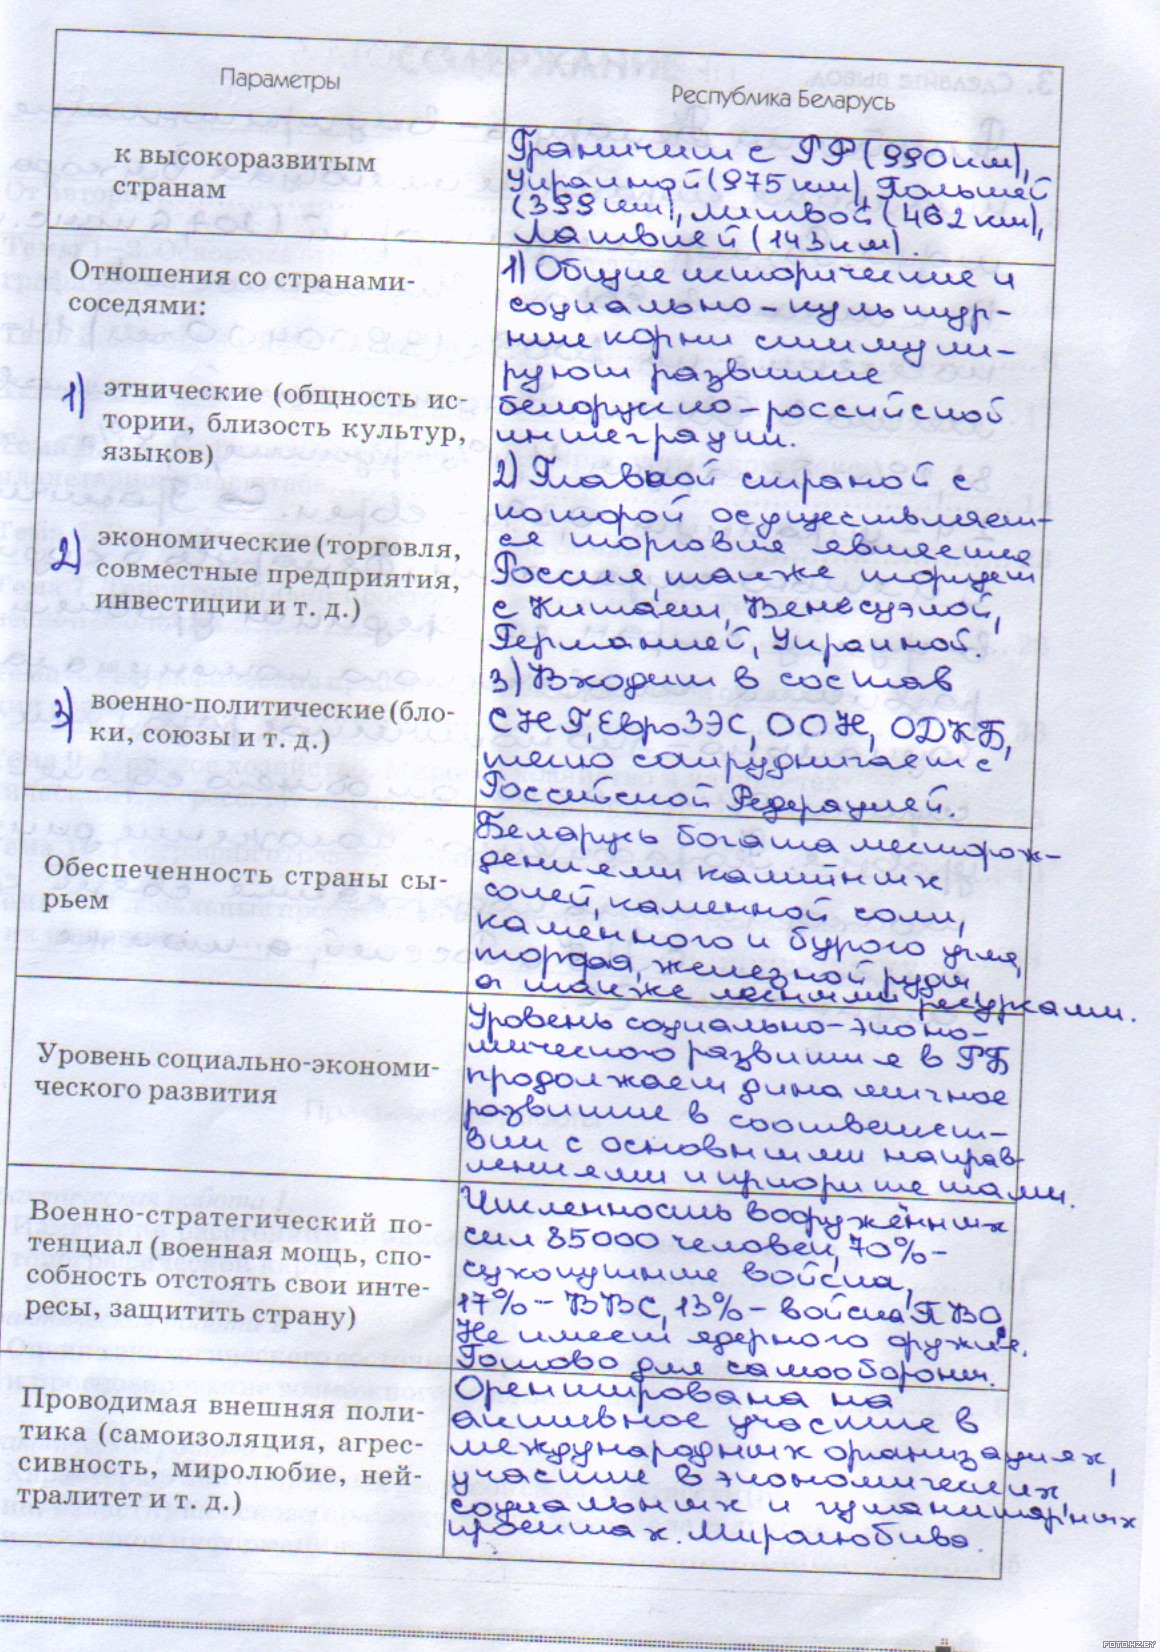 Параметры
Республика Беларусь
к высокоразвитым
странам
Граничит с РФ (990 км),
Украиной (975 км), Польшей
(399 км), Литвой (462 км),
Латвией (143 км).
Отношения со странами-
соседями:
1) этнические (общность ис-
тории, близость культур,
языков)
2) экономические (торговля,
совместные предприятия,
инвестиции и т. д.)
3) военно-политические (бло-
ки, союзы и т. д.)
1) Общие исторические и
социально-культур-
ные корни стимули-
руют развитие
белорусско-российской
интеграции.
2) Главной страной с
которой осуществляет-
ся торговля является
Россия, также торгует
с Китаем, Венесуэлой,
Германией, Украиной.
3) Входит в состав
СНГ, ЕвроЗЭС, ООН, ОДКБ,
тесно сотрудничает с
Российской Федерацией.
Обеспеченность страны сы-
рьем
Беларусь богата месторож-
дениями калийных
солей, каменной соли,
каменного и бурого угля,
торфая, железной руды,
а также лесными ресурсами.
Уровень социально-экономи-
ческого развития
Уровень социально-эконо-
мического развития в РБ
продолжает динамичное
развитие в соответст-
вии с основными направ-
лениями и приоритетами.
Военно-стратегический по-
тенциал (военная мощь, спо-
собность отстоять свои инте-
ресы, защитить страну)
Численность вооружённых
сил 85000 человек, 70% -
сухопутные войска,
17% - ВВС, 13% - войска ПВО
Не имеет ядерного оружия.
Готово для самообороны.
Проводимая внешняя поли-
тика (самоизоляция, агрес-
сивность, миролюбие, ней-
тралитет и т. д.)
Оренитирована на
активное участие в
международных организациях,
участие в экономических
социальных и гуманитарных
проектах. Миралюбива.
FOTO.HZ.BY